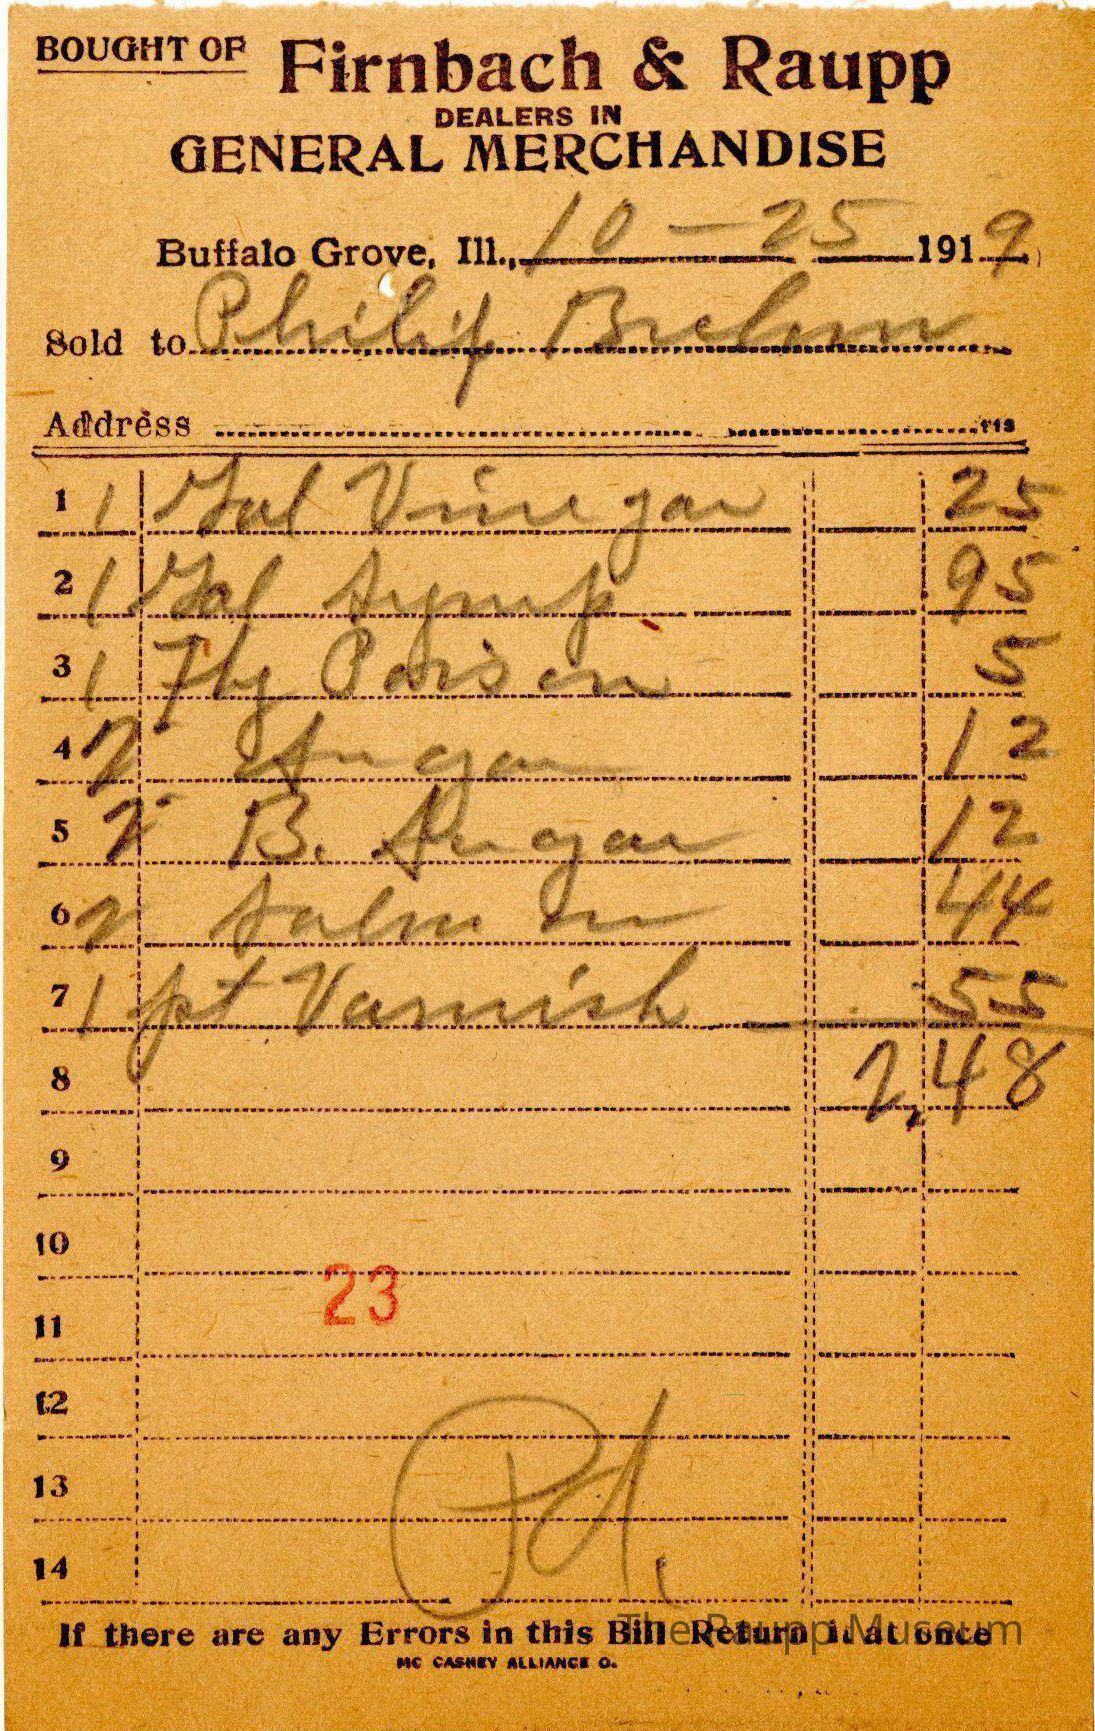 BOUGHT OF Firnbach & Raupp
DEALERS IN
GENERAL MERCHANDISE
Buffalo Grove, Ill., 10-25 1919
Sold to Philip Brehm
Address
1 1 Gal Vinegar 25
2 1 Gal Syrup 95
3 1 Fly Poison 5
4 2 Sugar 12
5 2 B. Sugar 12
6 2 Salmon 44
7 1 pt Varnish 55
8 2,48
9
10
23
11
12
13 Pd.
14
If there are any Errors in this Bill Return it at once
The Raupp Museum
MC CASKEY ALLIANCE O.